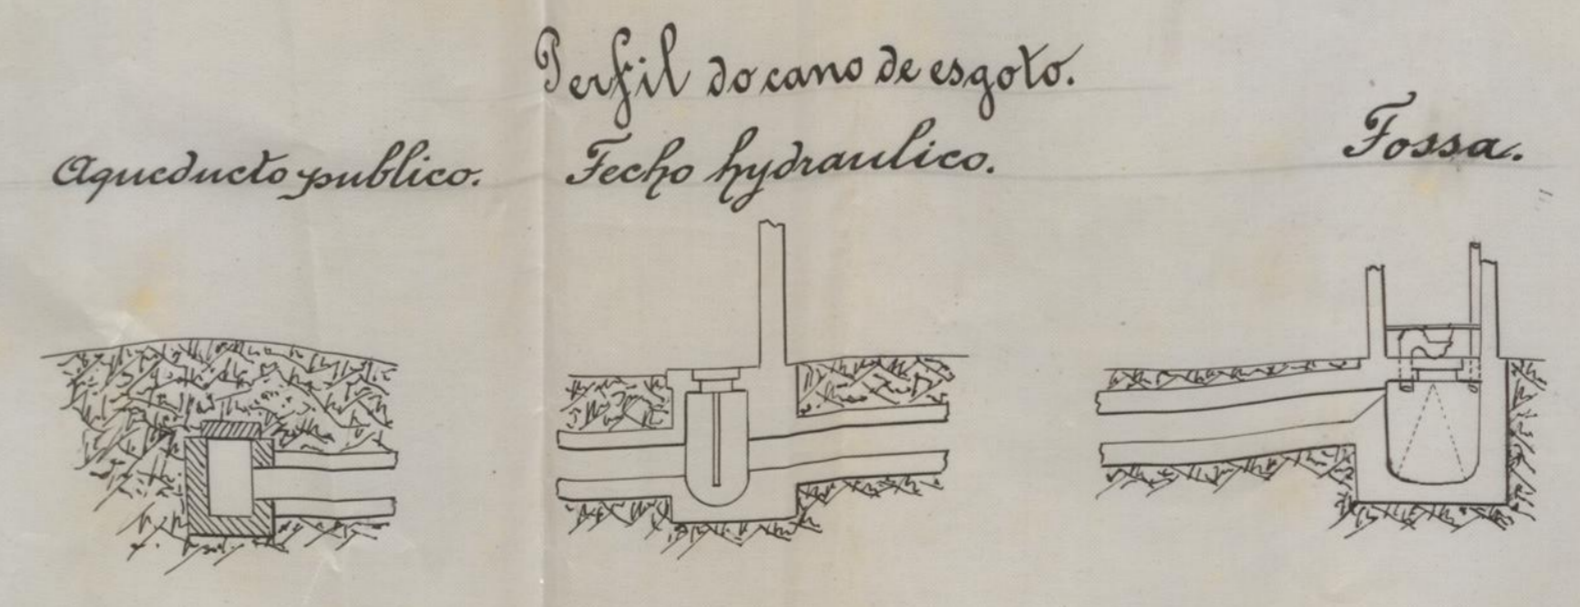 Perfil do cano de esgoto.
Aqueducto publico.
Fecho hydraulico.
Fossa.